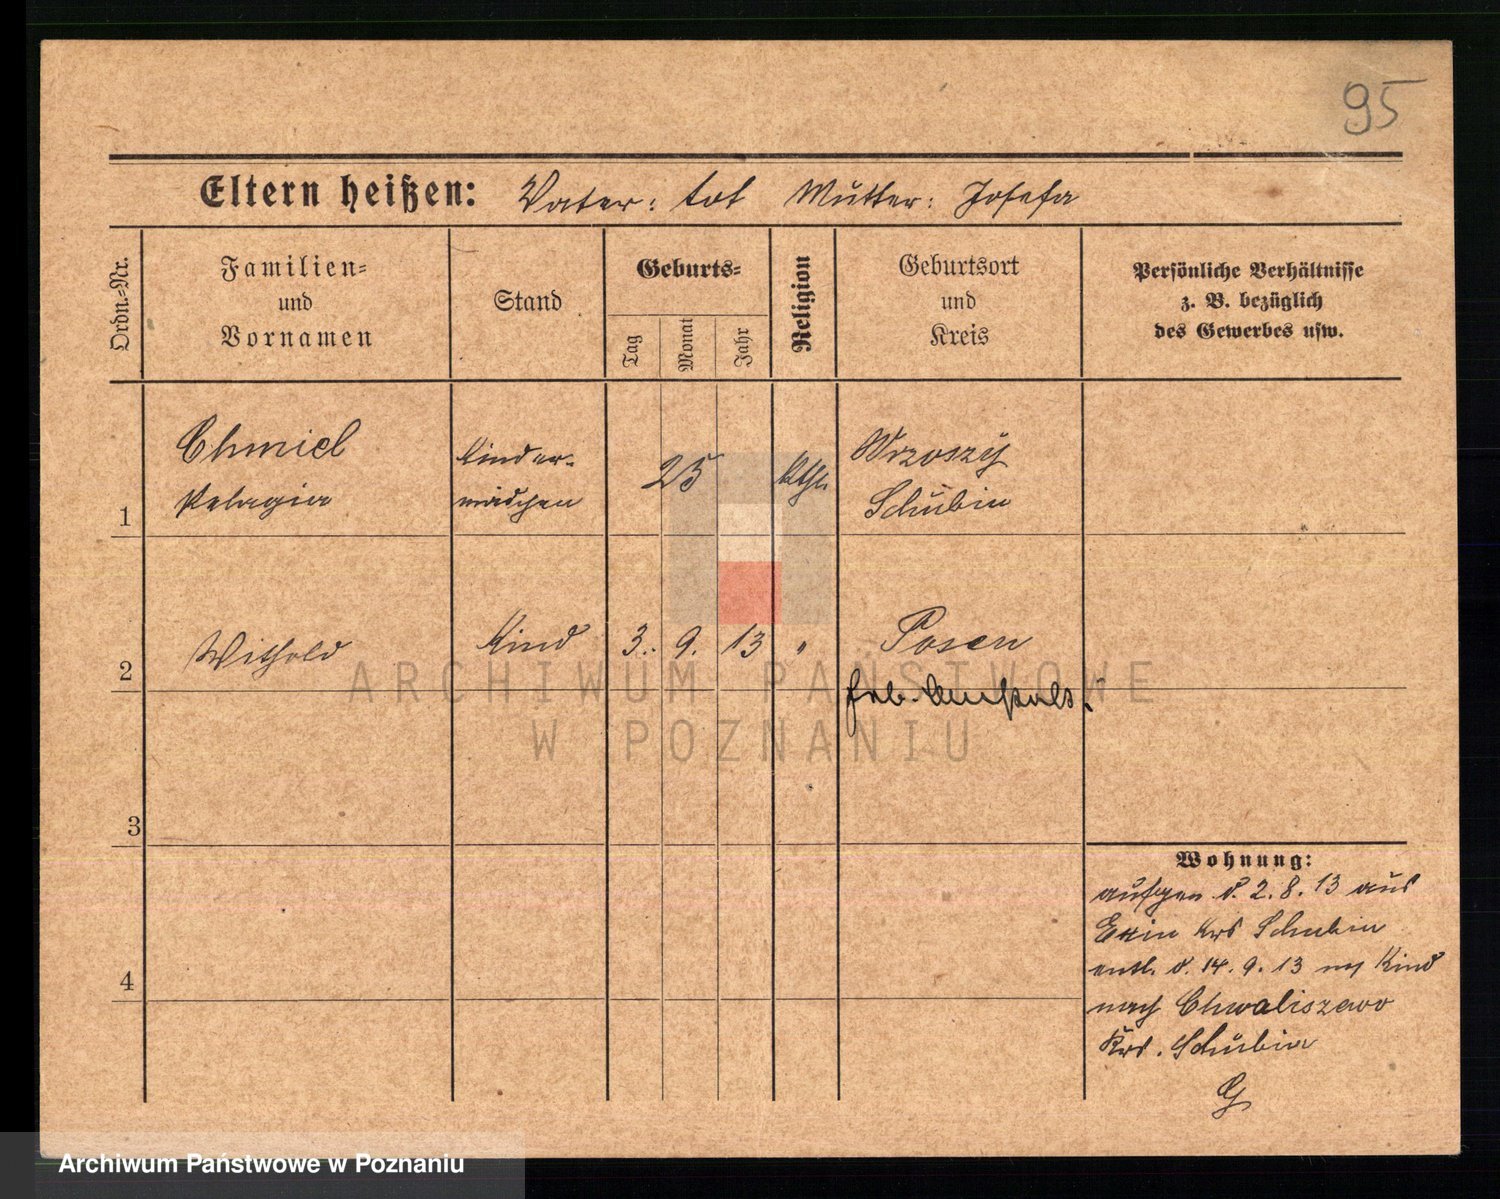 95
Eltern heißen: Vater: tot Mutter: Josefa
Ordn.-Nr.
Familien-
und
Vornamen
Stand
Geburts-
Tag
Monat
Jahr
Religion
Geburtsort
und
Kreis
Persönliche Verhältnisse
z. B. bezüglich
des Gewerbes usw.
1
Chmiel
Pelagia
Kinder-
mädchen
25
kthl.
Wrzoszÿ
Schubin
2
Withold
Kind
3. 9. 13
"
Posen
3
4
Wohnung:
aufgen d. 2. 8. 13 aus
Exin Krs Schubin
entl. d. 14. 9. 13 Kind
nach Chwaliszewo
Krs. Schubin
G
ARCHIWUM PAŃSTWOWE
W POZNANIU
Archiwum Państwowe w Poznaniu